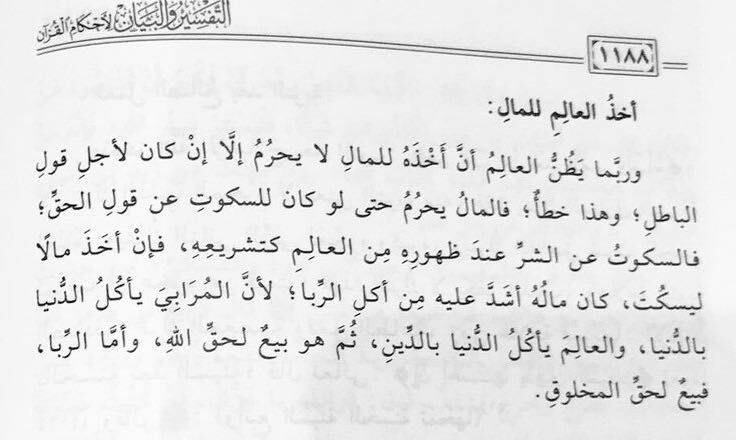 التَّفْسِيرُ وَالبَيَانُ لِأَحْكَامِ القُرْآنِ
١١٨٨
أخذُ العالِمِ للمالِ:
وربَّما يَظُنُّ العالِمُ أنَّ أَخْذَهُ للمالِ لا يحرُمُ إلَّا إنْ كان لأجلِ قولِ
الباطلِ؛ وهذا خطأٌ؛ فالمالُ يحرُمُ حتى لو كان للسكوتِ عن قولِ الحقِّ؛
فالسكوتُ عن الشرِّ عندَ ظهورِهِ مِن العالِمِ كتشريعِهِ، فإنْ أخَذَ مالًا
ليسكُتَ، كان مالُهُ أشَدَّ عليه مِن أكلِ الرِّبا؛ لأنَّ المُرَابِيَ يأكُلُ الدُّنيا
بالدُّنيا، والعالِمَ يأكُلُ الدُّنيا بالدِّينِ، ثُمَّ هو بيعٌ لحقِّ اللهِ، وأمَّا الرِّبا،
فبيعٌ لحقِّ المخلوقِ.